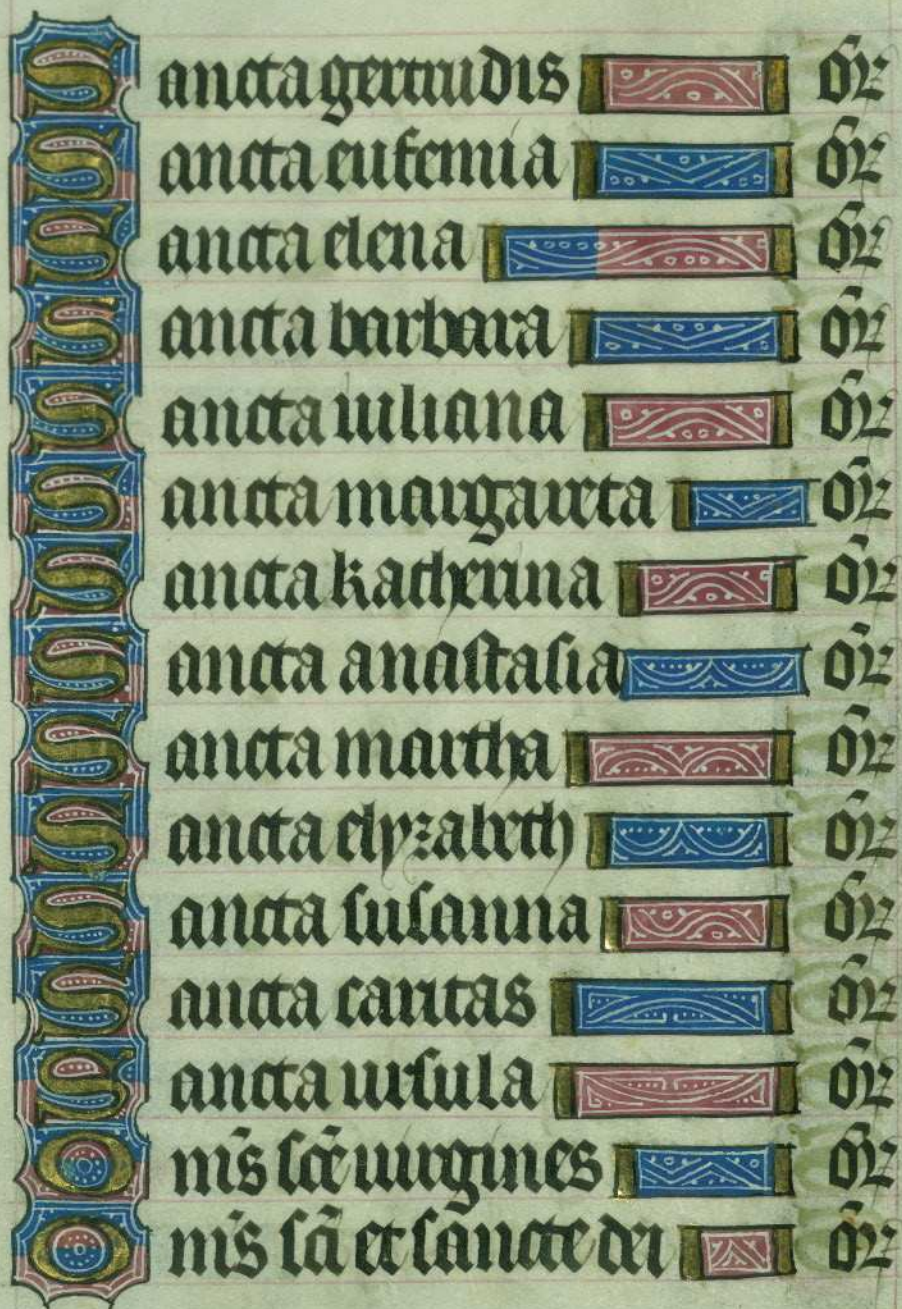 Sancta gertrudis or
Sancta eufemia or
Sancta elena or
Sancta barbara or
Sancta iuliana or
Sancta margareta or
Sancta katherina or
Sancta anastasia or
Sancta martha or
Sancta elyzabeth or
Sancta susanna or
Sancta caritas or
Sancta ursula or
Om̄s sc̄e uirgines or
Om̄s sc̄i et sancte dei or